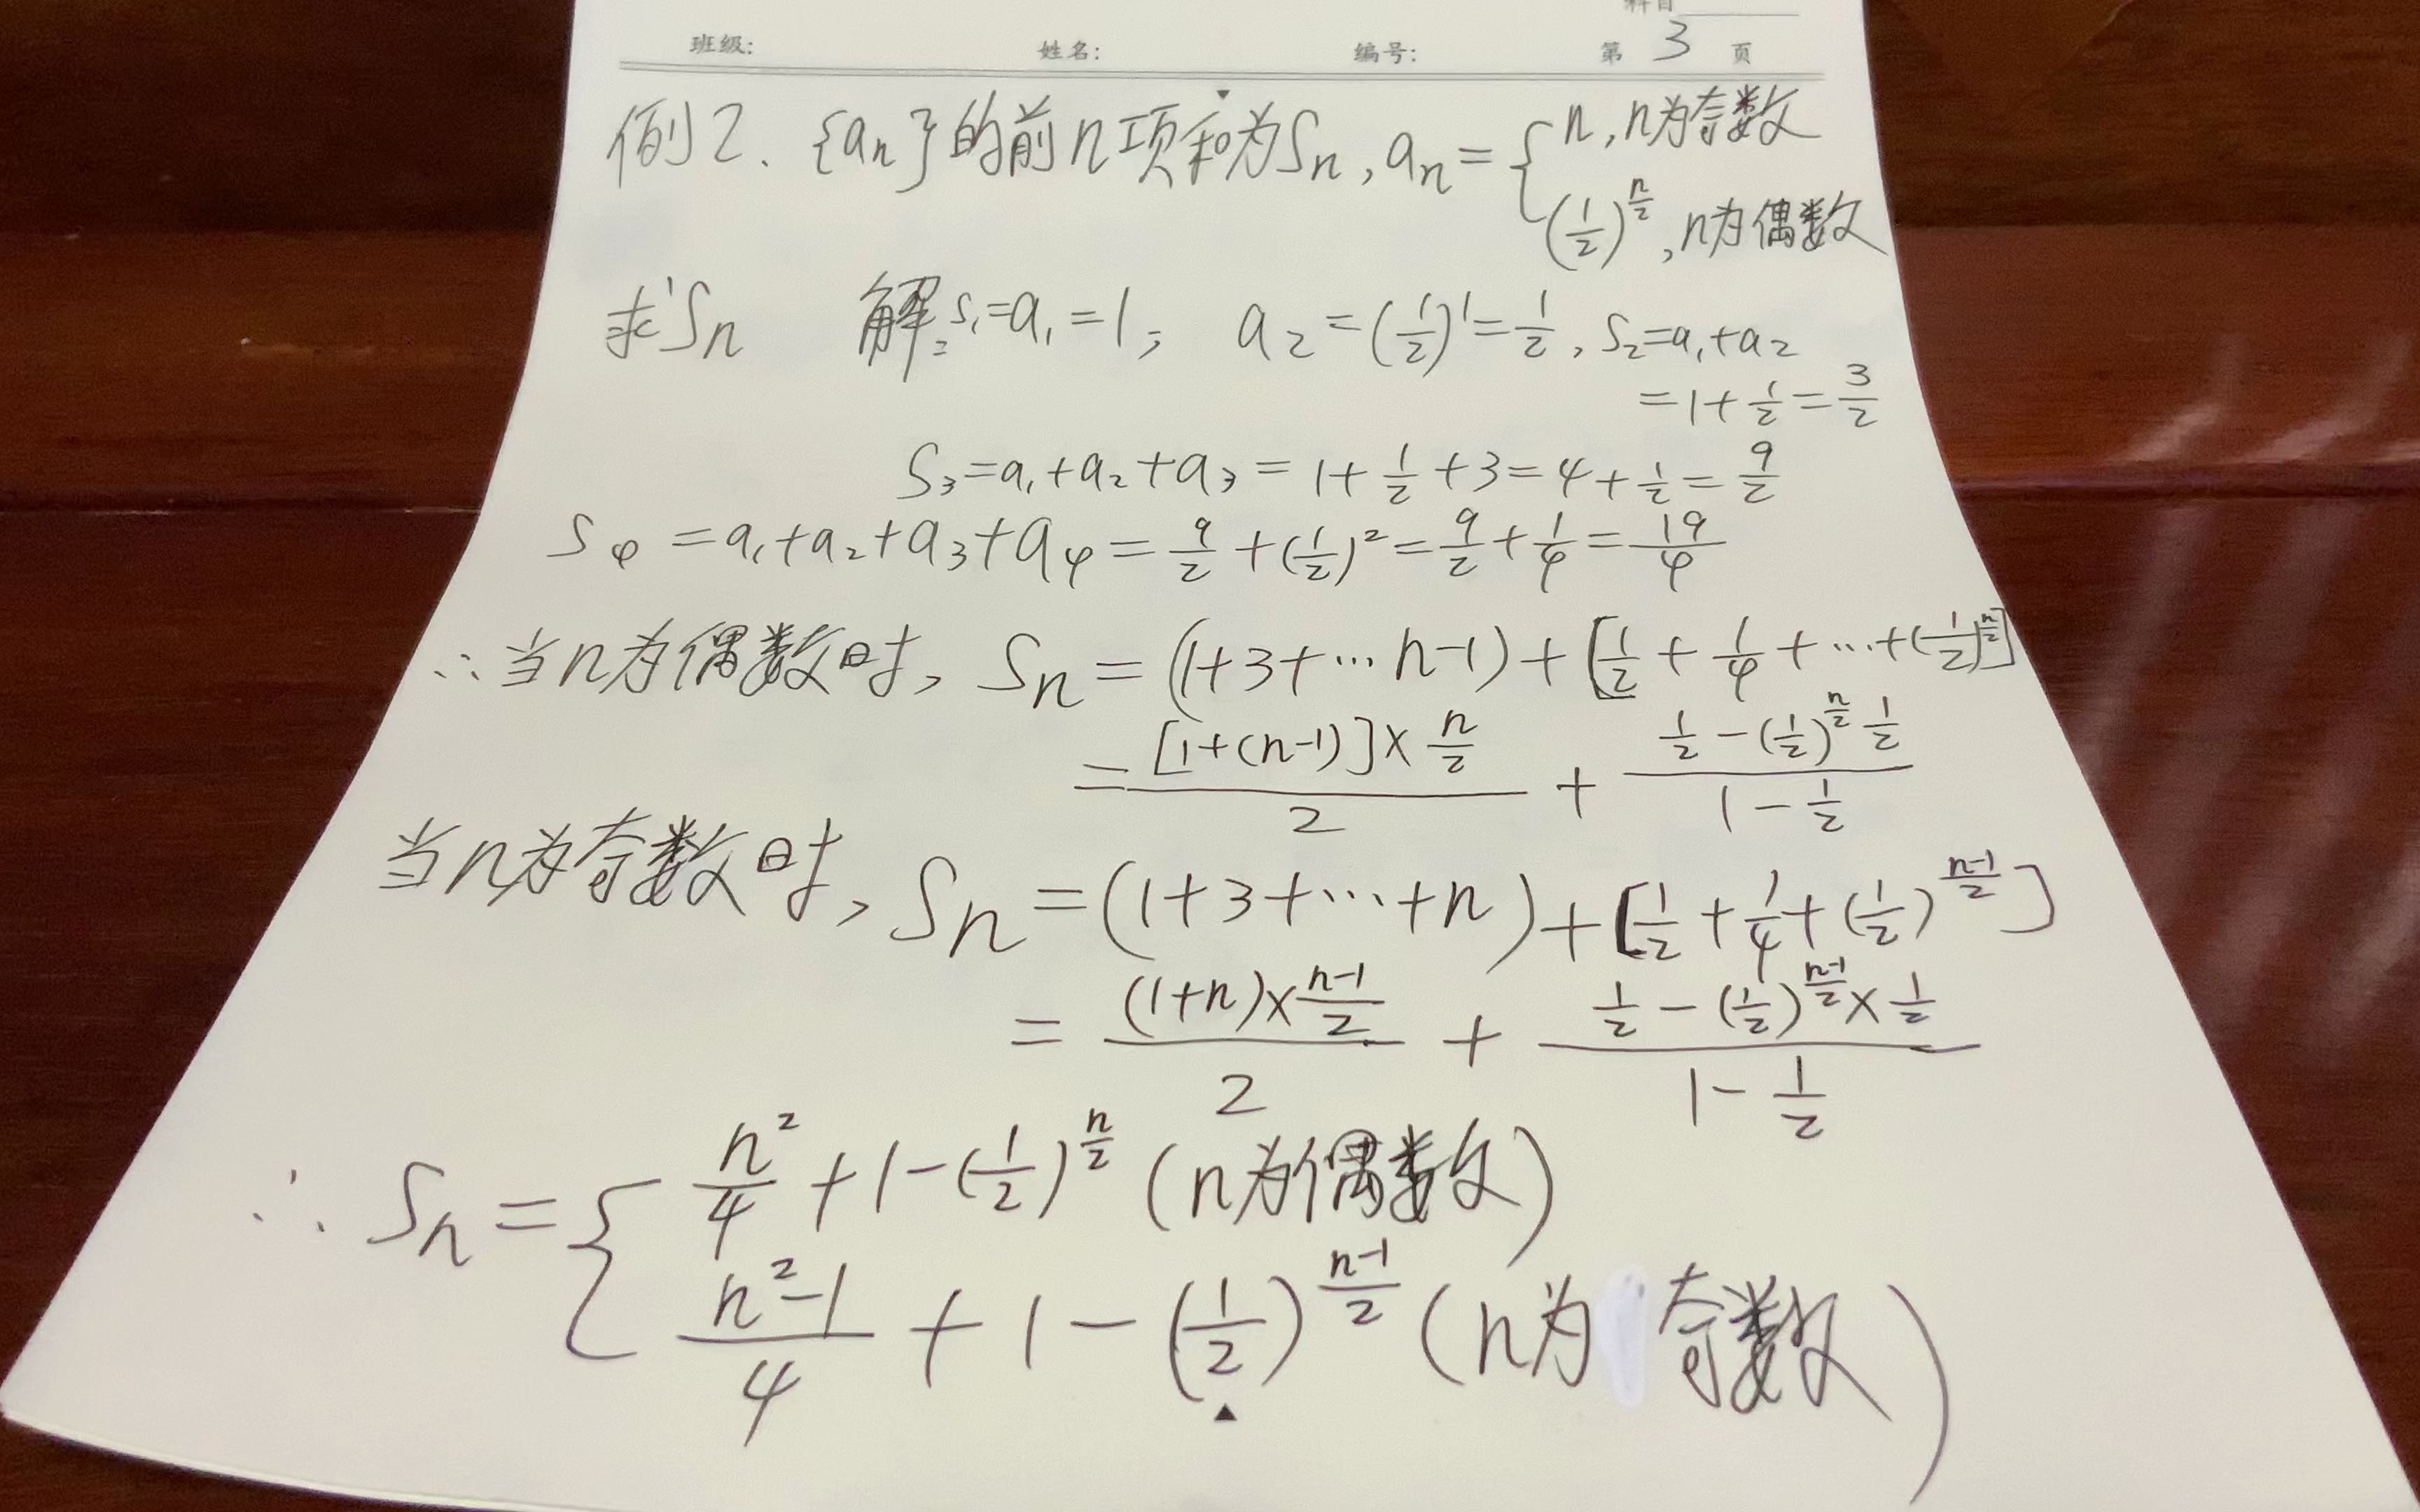 科目
班级: 姓名: 编号: 第 3 页
例2、{aₙ}的前n项和为Sₙ, aₙ = { n, n为奇数
(1/2)^(n/2), n为偶数
求Sₙ 解: S₁=a₁=1, a₂=(1/2)¹=1/2, S₂=a₁+a₂
=1+1/2=3/2
S₃=a₁+a₂+a₃=1+1/2+3=4+1/2=9/2
S₄=a₁+a₂+a₃+a₄=9/2+(1/2)²=9/2+1/4=19/4
∴当n为偶数时, Sₙ=(1+3+…n-1)+[1/2+1/4+…+(1/2)^(n/2)]
= [1+(n-1)]×(n/2) / 2 + (1/2-(1/2)^(n/2) 1/2) / (1-1/2)
当n为奇数时, Sₙ=(1+3+…+n)+[1/2+1/4+(1/2)^((n-1)/2)]
= (1+n)×((n-1)/2) / 2 + (1/2-(1/2)^((n-1)/2)×1/2) / (1-1/2)
∴ Sₙ = { n²/4+1-(1/2)^(n/2) (n为偶数)
(n²-1)/4+1-(1/2)^((n-1)/2) (n为奇数)